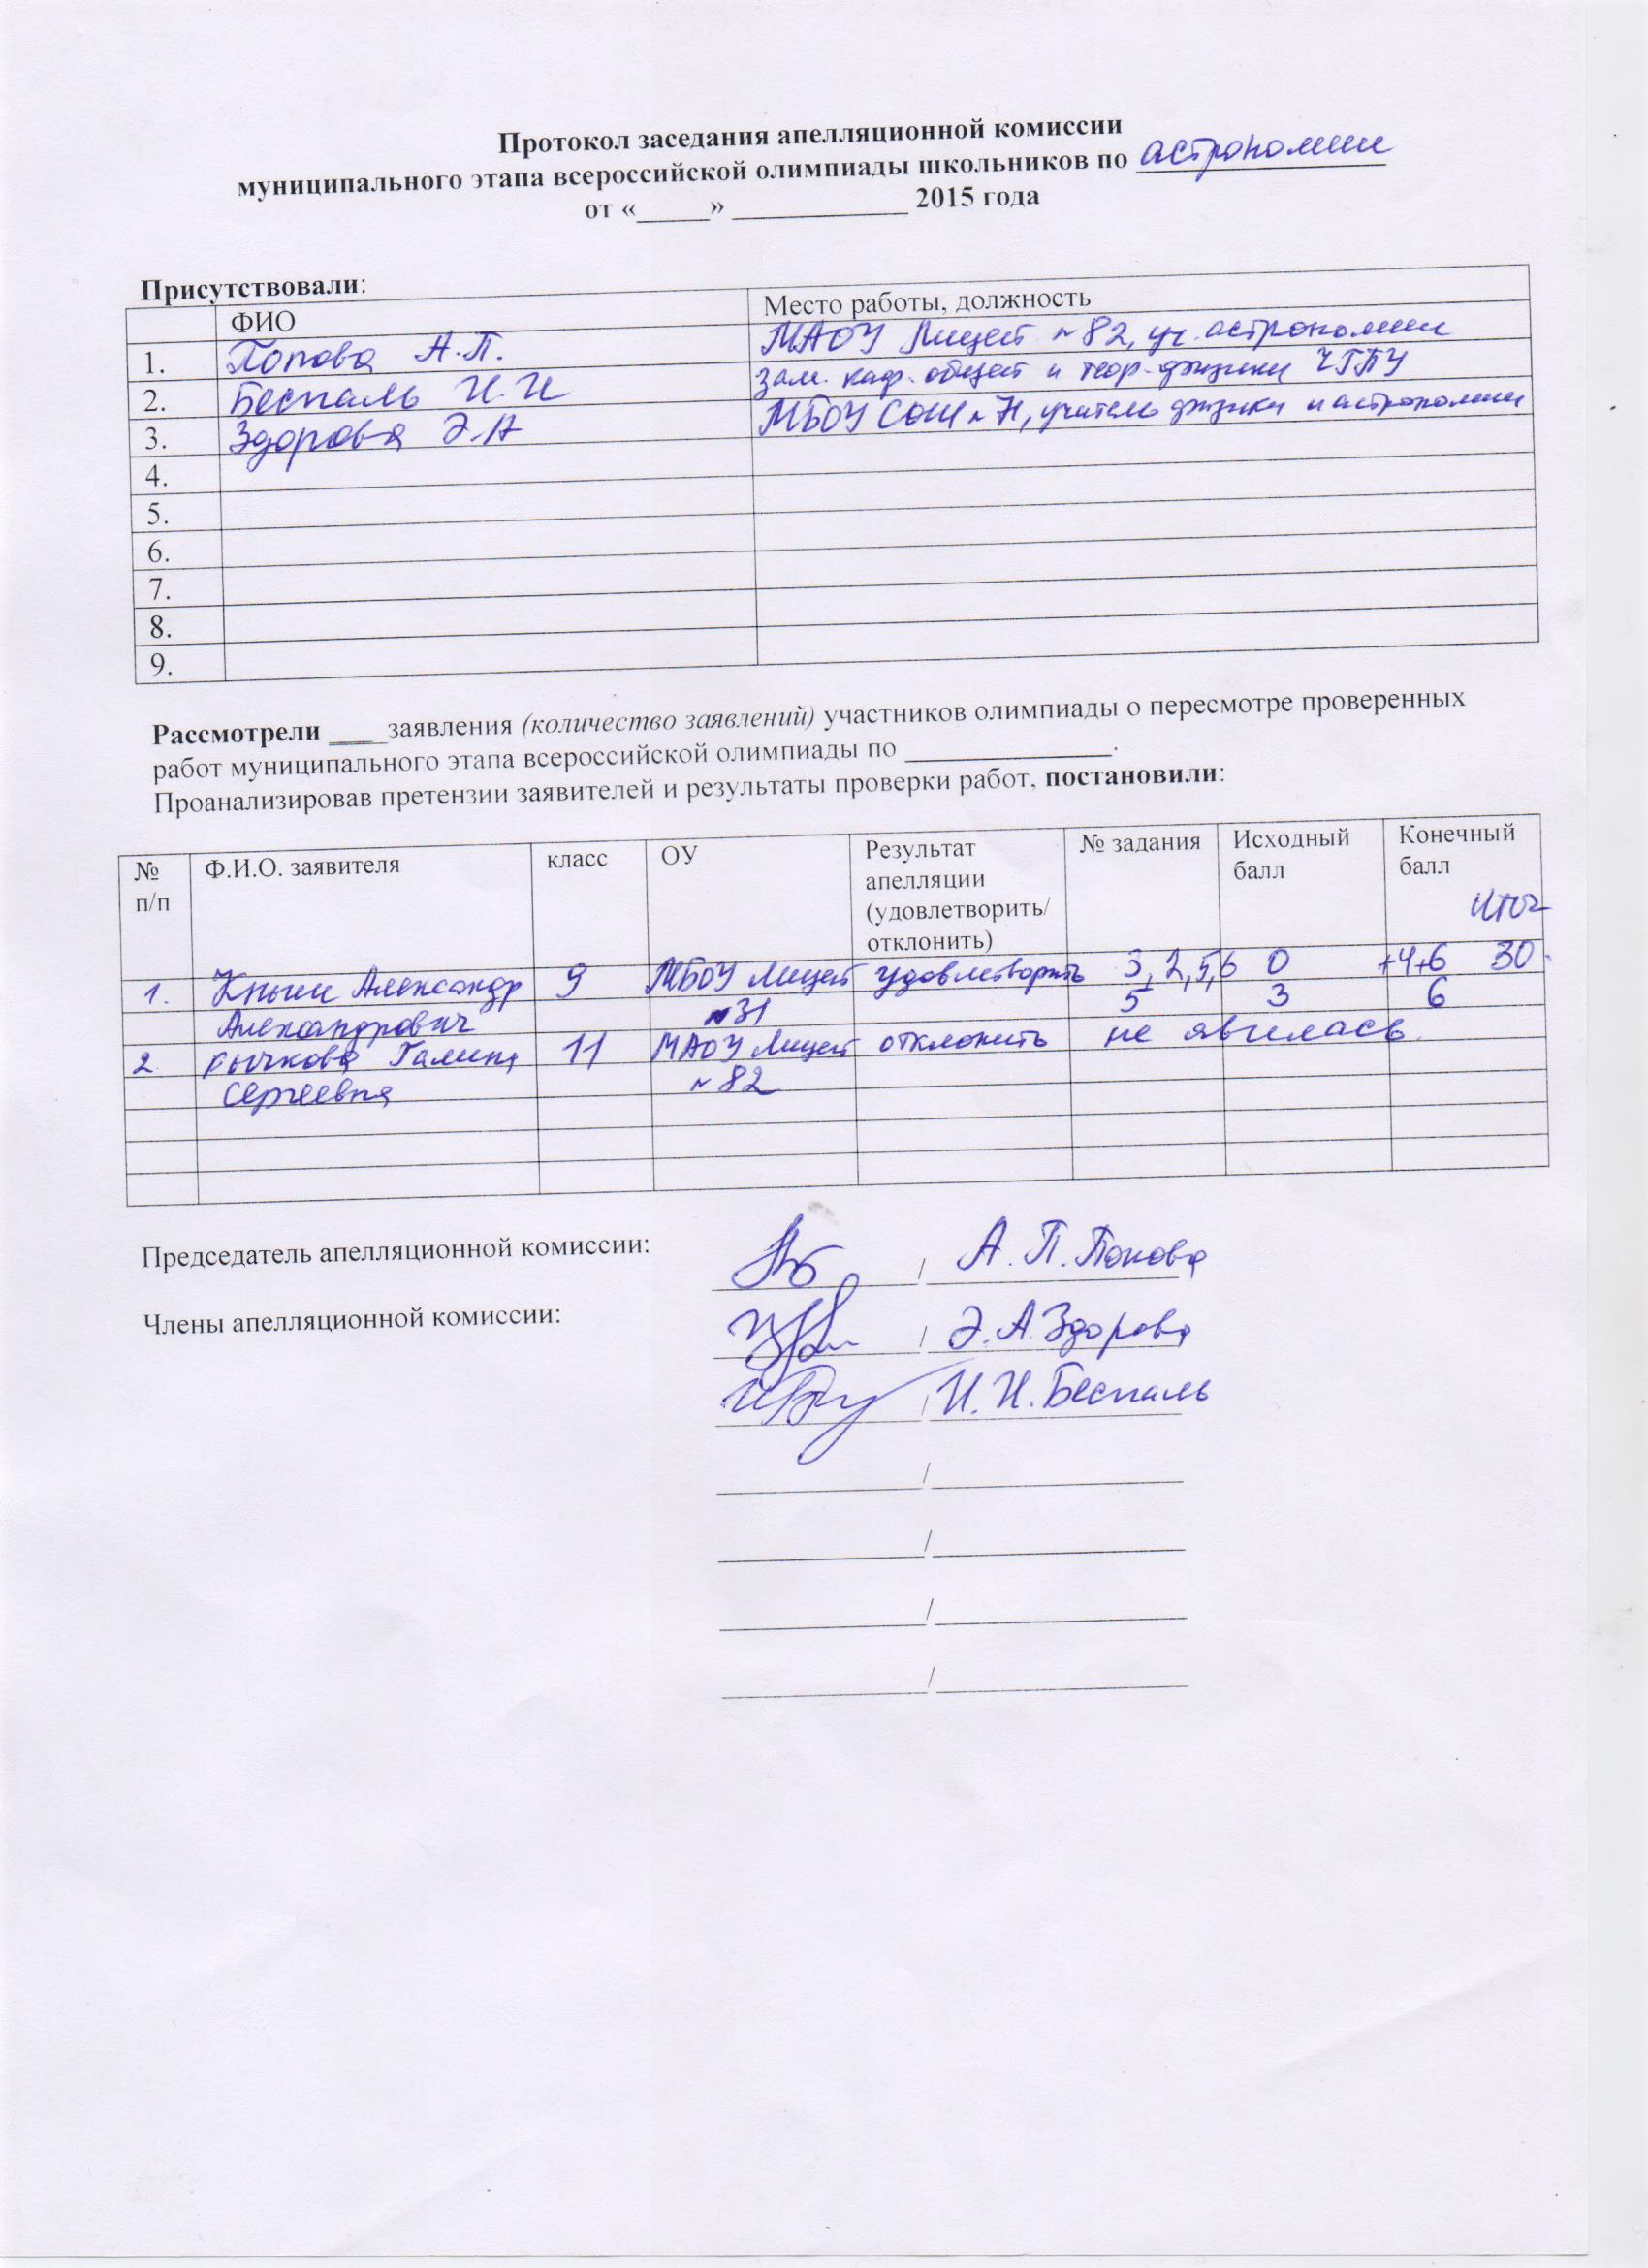 Протокол заседания апелляционной комиссии
муниципального этапа всероссийской олимпиады школьников по астрономии
от «_____» ____________ 2015 года
Присутствовали:
ФИО Место работы, должность
1. Попова А.П. МАОУ Лицей №82, уч. астрономии
2. Беспаль И.И зам. каф. общей и теор. физики ЧГПУ
3. Здорова Э.А МБОУ СОШ №71, учитель физики и астрономии
4.
5.
6.
7.
8.
9.
Рассмотрели ____заявления (количество заявлений) участников олимпиады о пересмотре проверенных
работ муниципального этапа всероссийской олимпиады по ______________.
Проанализировав претензии заявителей и результаты проверки работ, постановили:
№ Ф.И.О. заявителя класс ОУ Результат № задания Исходный Конечный
п/п апелляции балл балл
(удовлетворить/ итог
отклонить)
1. Александр 9 МБОУ Лицей удовлетворить 3, 2, 5, 6 0 +4+6 30
Александрович №31 5 3 6
2. Рычкова Галина 11 МАОУ Лицей отклонить не явилась.
Сергеевна №82
Председатель апелляционной комиссии: / А.П. Попова
Члены апелляционной комиссии: / Э.А. Здорова
/ И.И. Беспаль
/
/
/
/